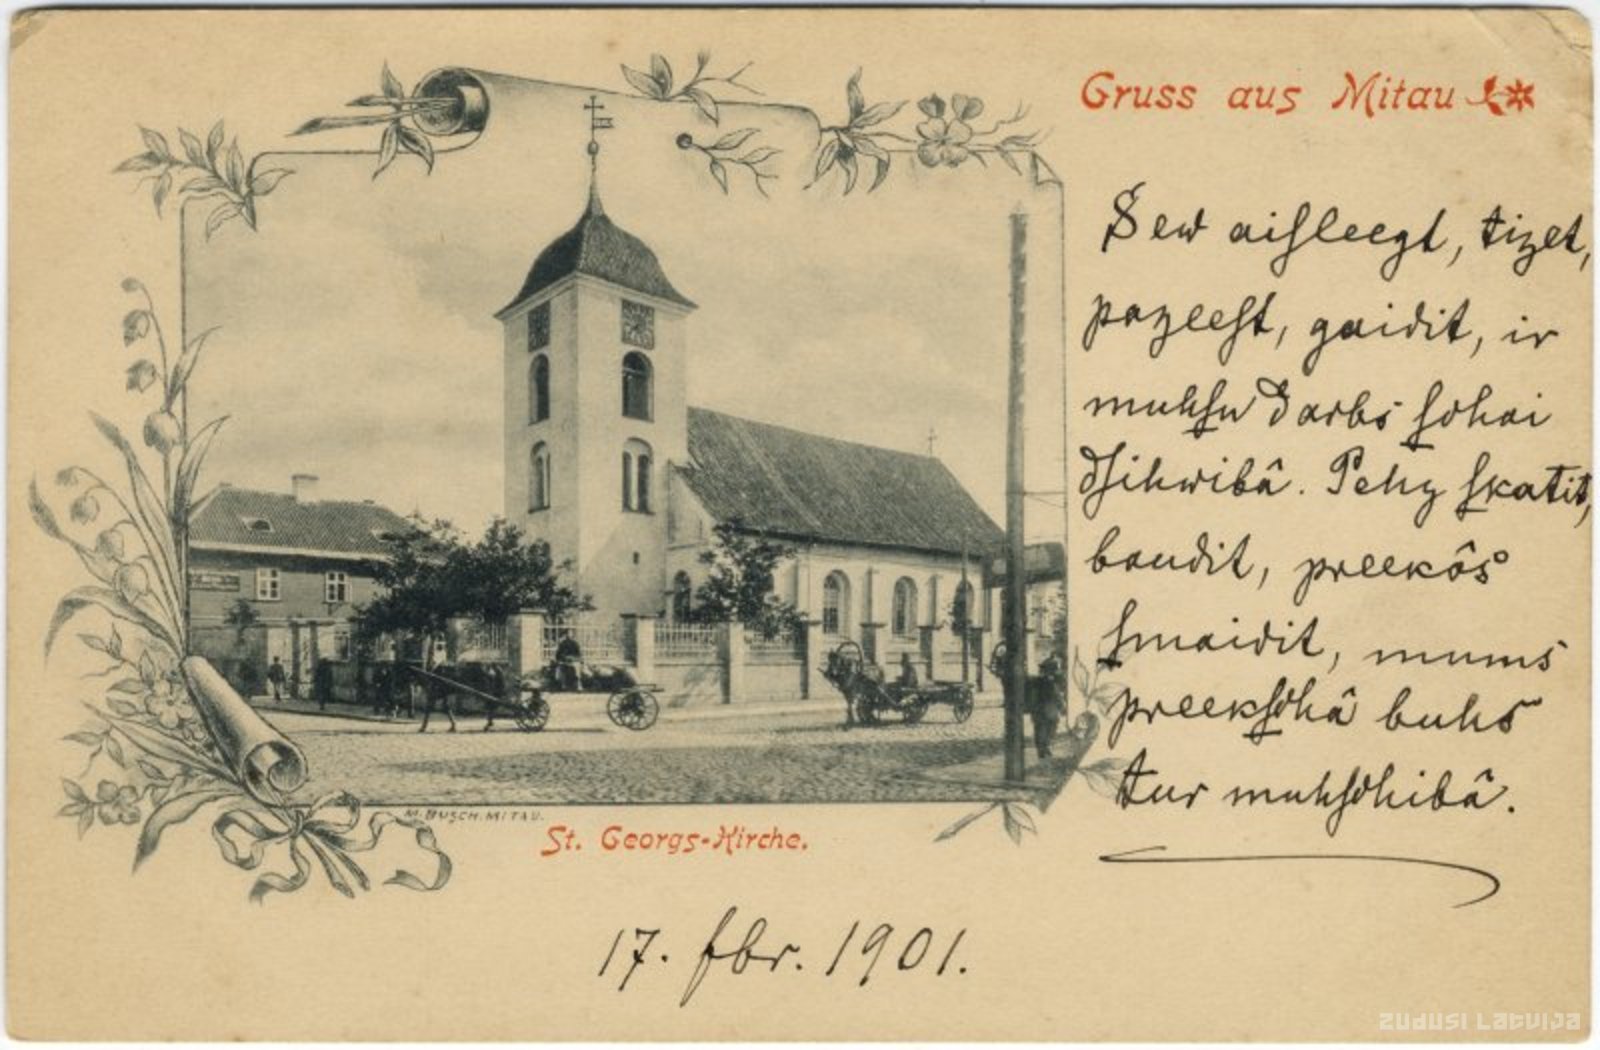 Gruss aus Mitau
Sew aisleegt, tizet,
pazeest, gaidit, ir
muhsu darbs schai
dsihwibâ. Pehz skatit,
baudit, preekôs
smaidit, mums
preekschâ buhs
tur muhschibâ.
M. BUSCH. MITAU.
St. Georgs-Kirche.
17. fbr. 1901.
zudusi Latvija